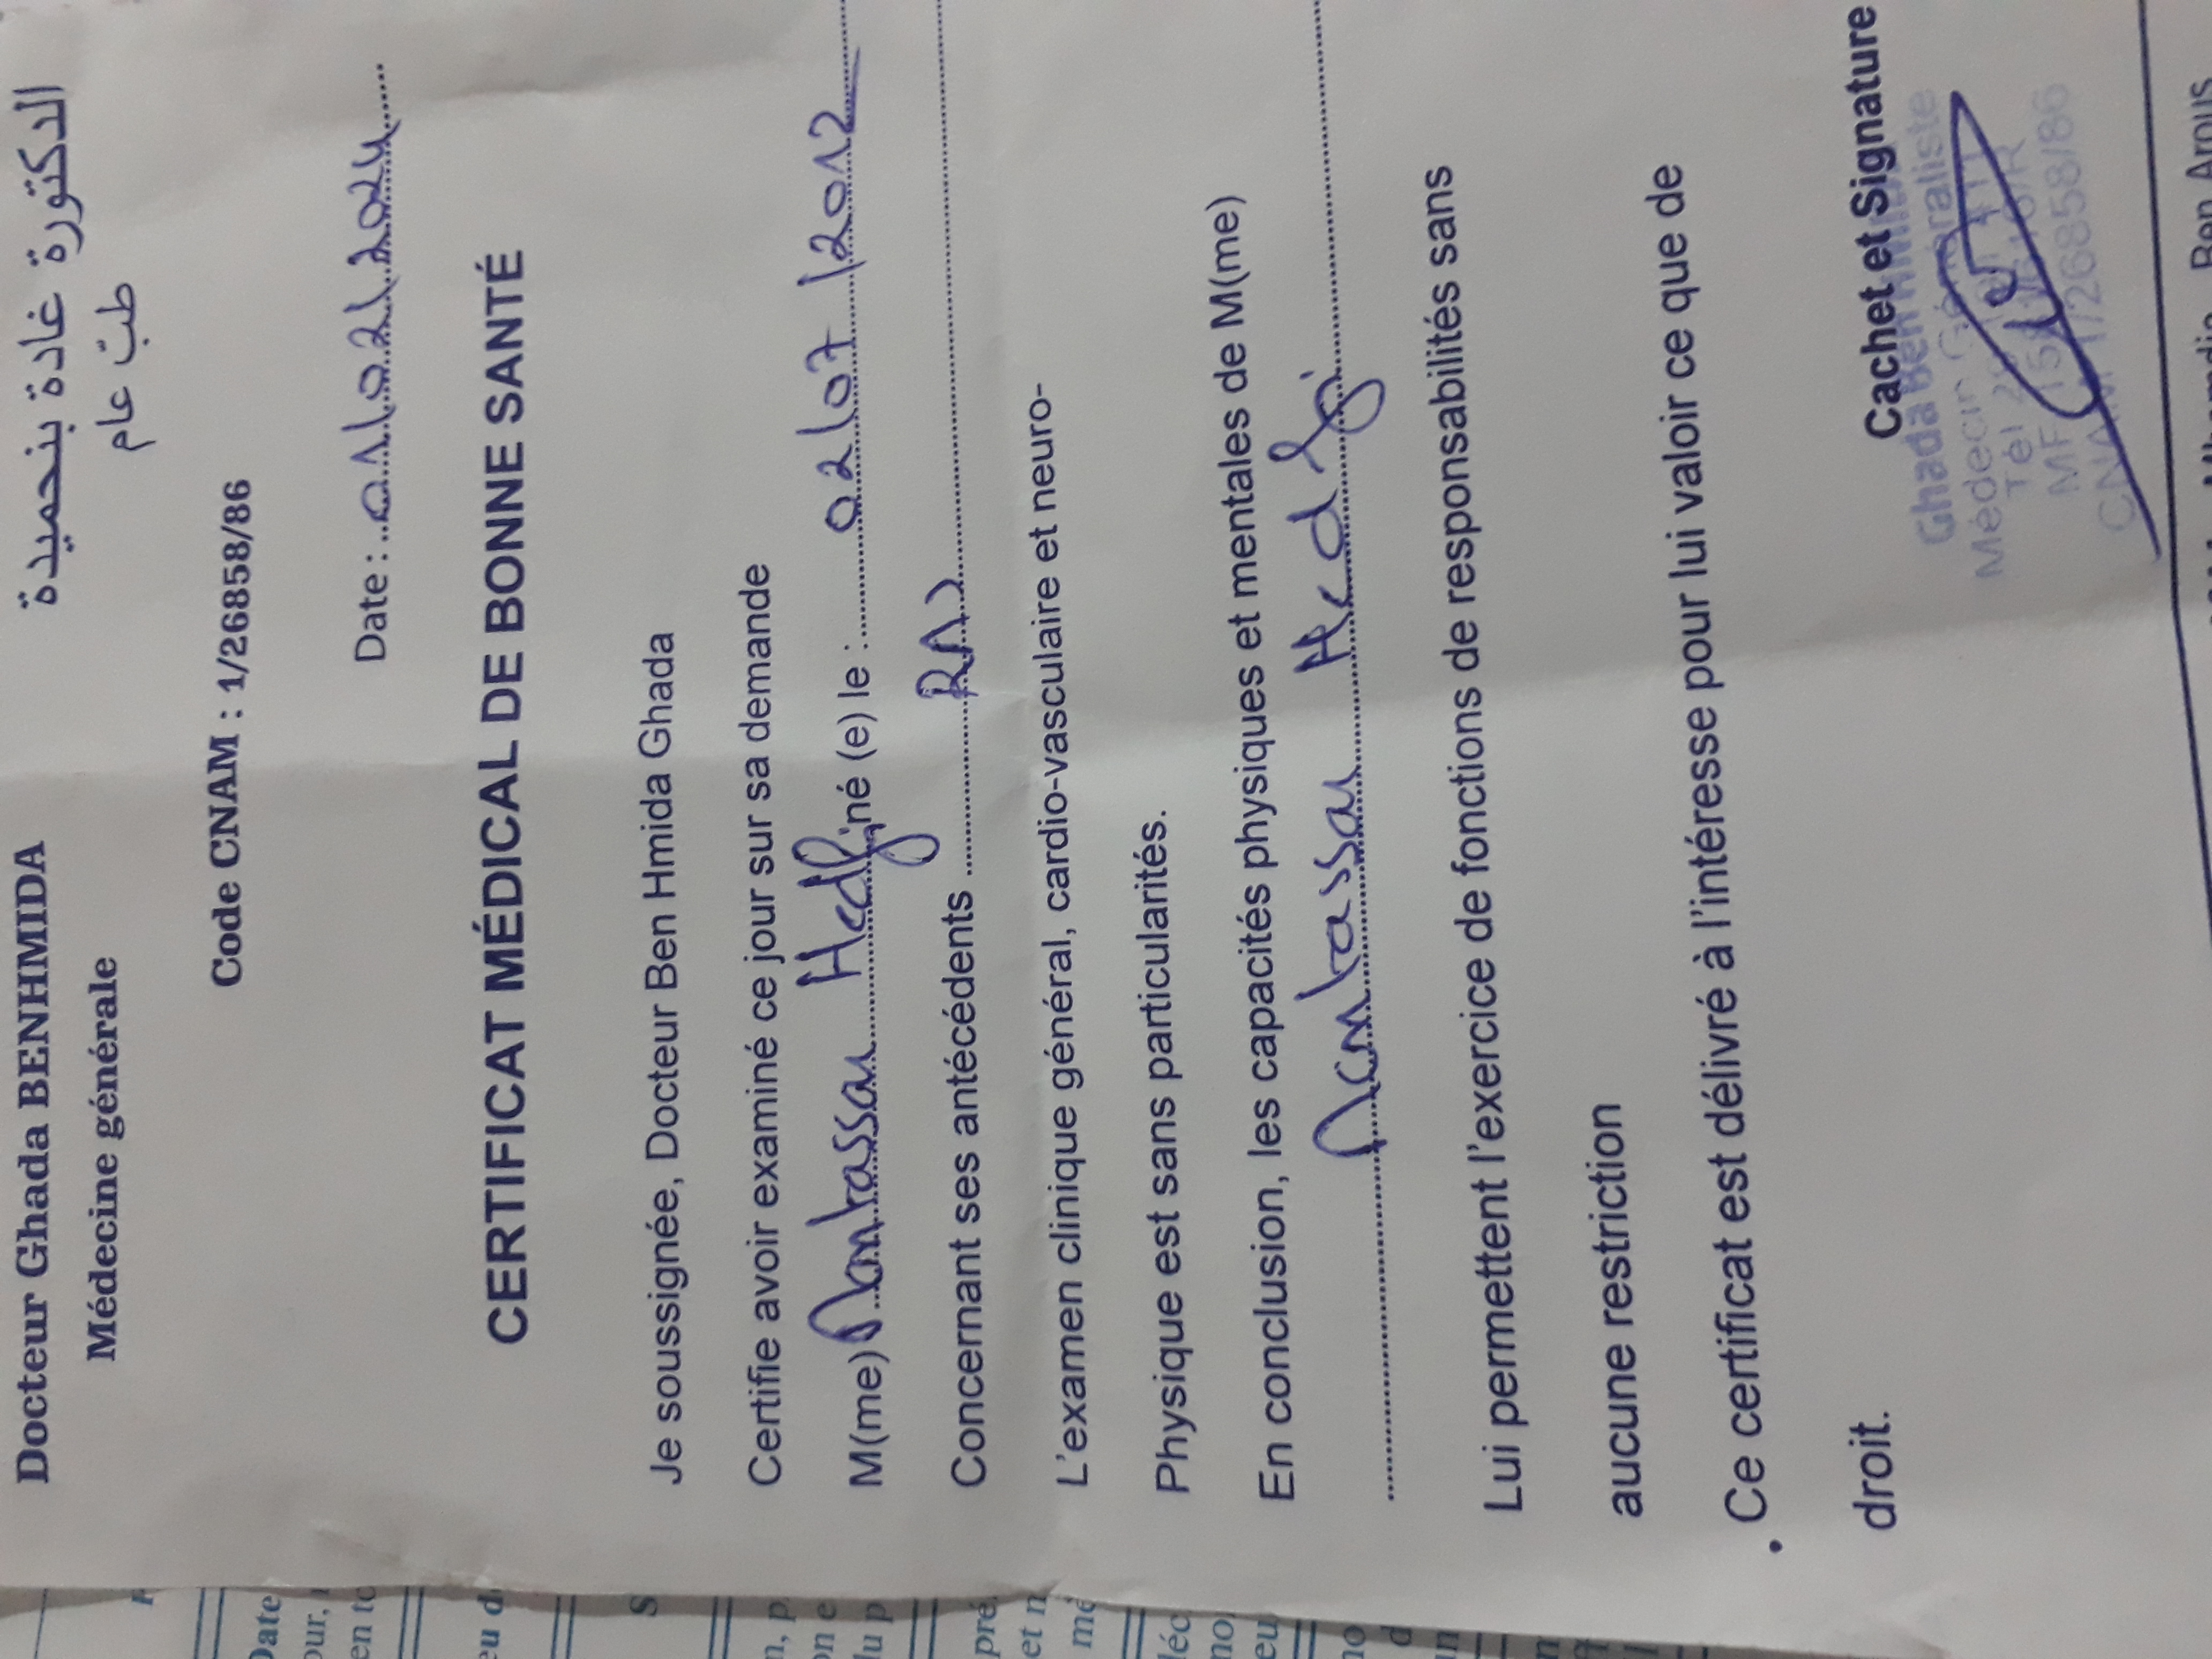 Docteur Ghada BENHMIDA
الدكتورة غادة بنحميدة
Médecine générale
طبّ عام
Code CNAM : 1/26858/86
Date : 01/02/2024
CERTIFICAT MÉDICAL DE BONNE SANTÉ
Je soussignée, Docteur Ben Hmida Ghada
Certifie avoir examiné ce jour sur sa demande
M(me) Hedfi né (e) le : 02/07/2012
Concernant ses antécédents RAS
L'examen clinique général, cardio-vasculaire et neuro-
Physique est sans particularités.
En conclusion, les capacités physiques et mentales de M(me)
Lui permettent l'exercice de fonctions de responsabilités sans
aucune restriction
• Ce certificat est délivré à l'intéresse pour lui valoir ce que de
droit.
Cachet et Signature
Ghada Ben Hmida
Médecin Généraliste
Tél
MF
CNAM 1/26858/86
Ben Arous